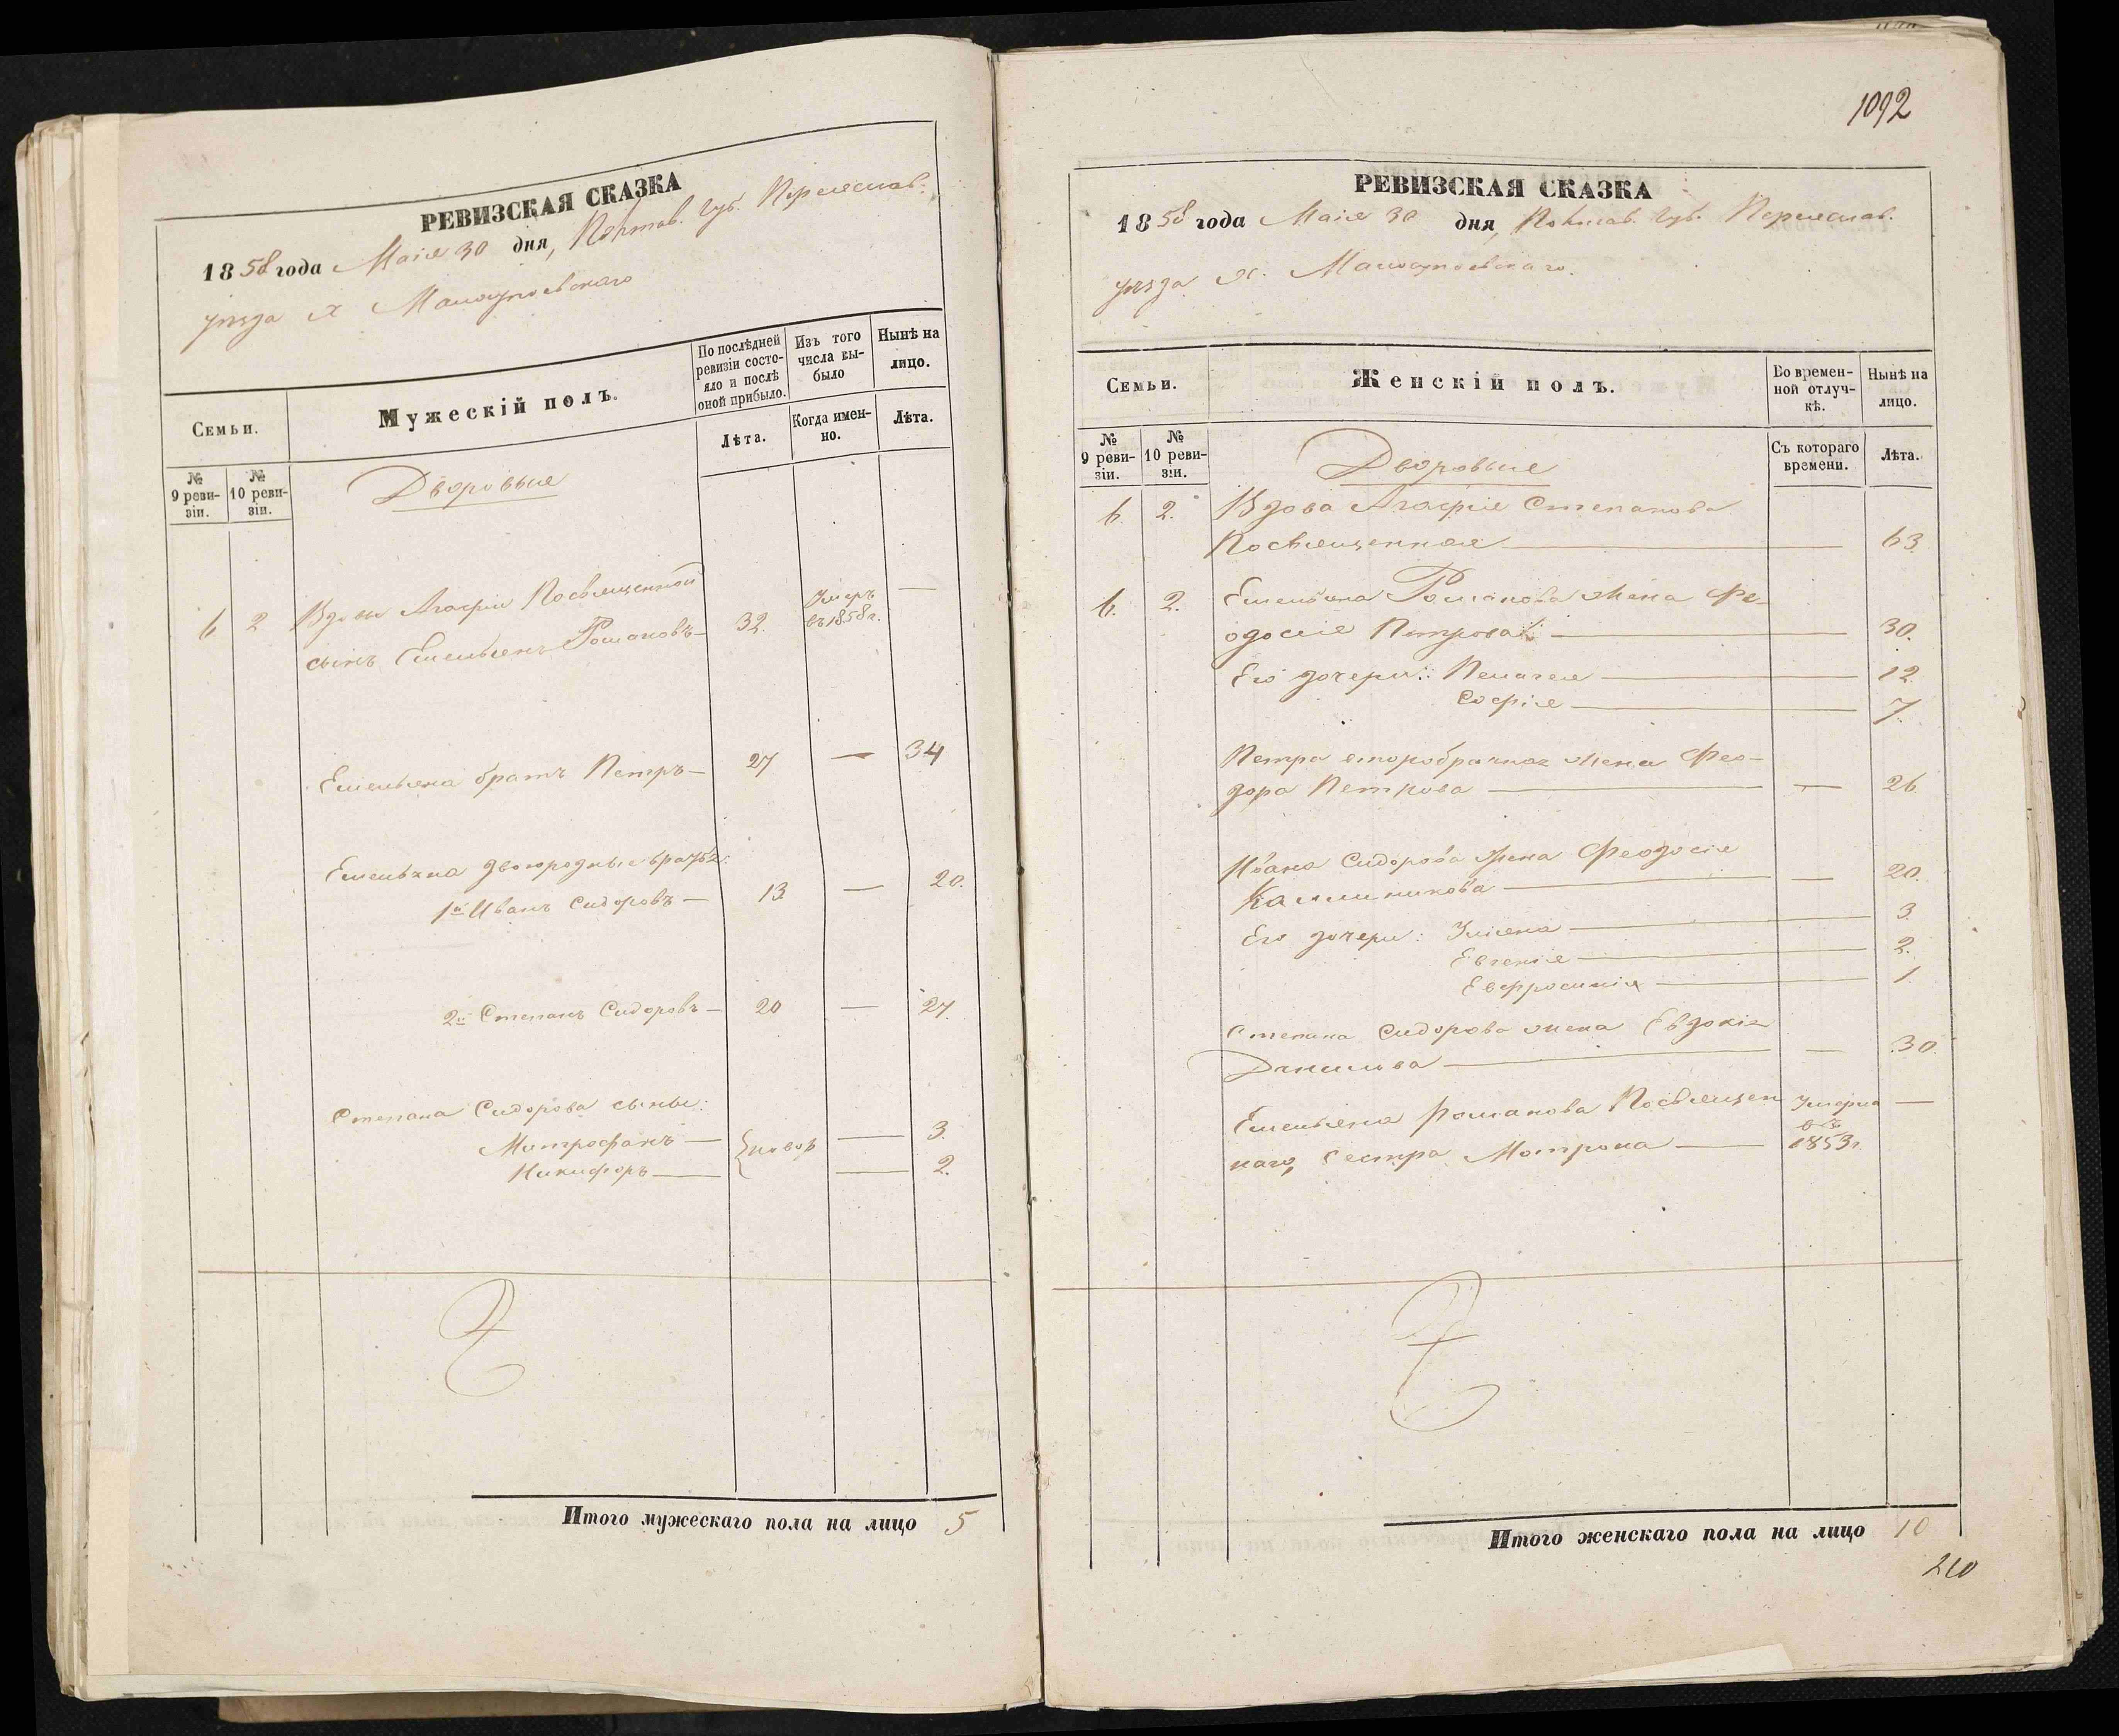 РЕВИЗСКАЯ СКАЗКА
1858 года Маія 30 дня, Полтав. Губ. Переяслав.
уѣзда х Малоуповскаго
Семьи.
Мужескій полъ.
По послѣдней ревизіи состояло и послѣ оной прибыло.
Изъ того числа выбыло
Нынѣ на лицо.
Лѣта.
Когда именно.
Лѣта.
№ 9 ревизіи.
№ 10 ревизіи.
Дворовые
6 2 Вдовы Агафіи Посвященной
сынъ Емельянъ Романовъ— 32. Умеръ въ 1858 г. —
Емельяна братъ Петръ— 27 — 34
Емельяна двоюродные братья:
1й Иванъ Сидоровъ — 13 — 20.
2й Степанъ Сидоровъ — 20 — 27.
Степана Сидорова сыны:
Митрофанъ — новор — 3.
Никифоръ — — 2.
Итого мужескаго пола на лицо 5
1092
РЕВИЗСКАЯ СКАЗКА
1858 года Маія 30 дня, Полтав. Губ. Переяслав.
уѣзда х. Малоуповскаго.
Семьи.
Женскій полъ.
Во временной отлучкѣ.
Нынѣ на лицо.
№ 9 ревизіи.
№ 10 ревизіи.
Съ котораго времени.
Лѣта.
Дворовые
6. 2. Вдова Агафія Степанова
Посвященная — 63.
6. 2. Емельяна Романова жена Фе-
одосія Петрова — 30.
Его дочери: Пелагея — 12.
Софія — 7.
Петра второбрачная жена Фео-
дора Петрова — — 26.
Ивана Сидорова жена Феодосія
— — 20.
Его дочери: Уліяна — 3.
Евгенія — 2.
Евфросинія — 1.
Степана Сидорова жена Евдокія
Данилова — — 30.
Емельяна Романова Посвящен Умерла —
наго, сестра Мотрона — въ 1853 г.
Итого женскаго пола на лицо 10
210